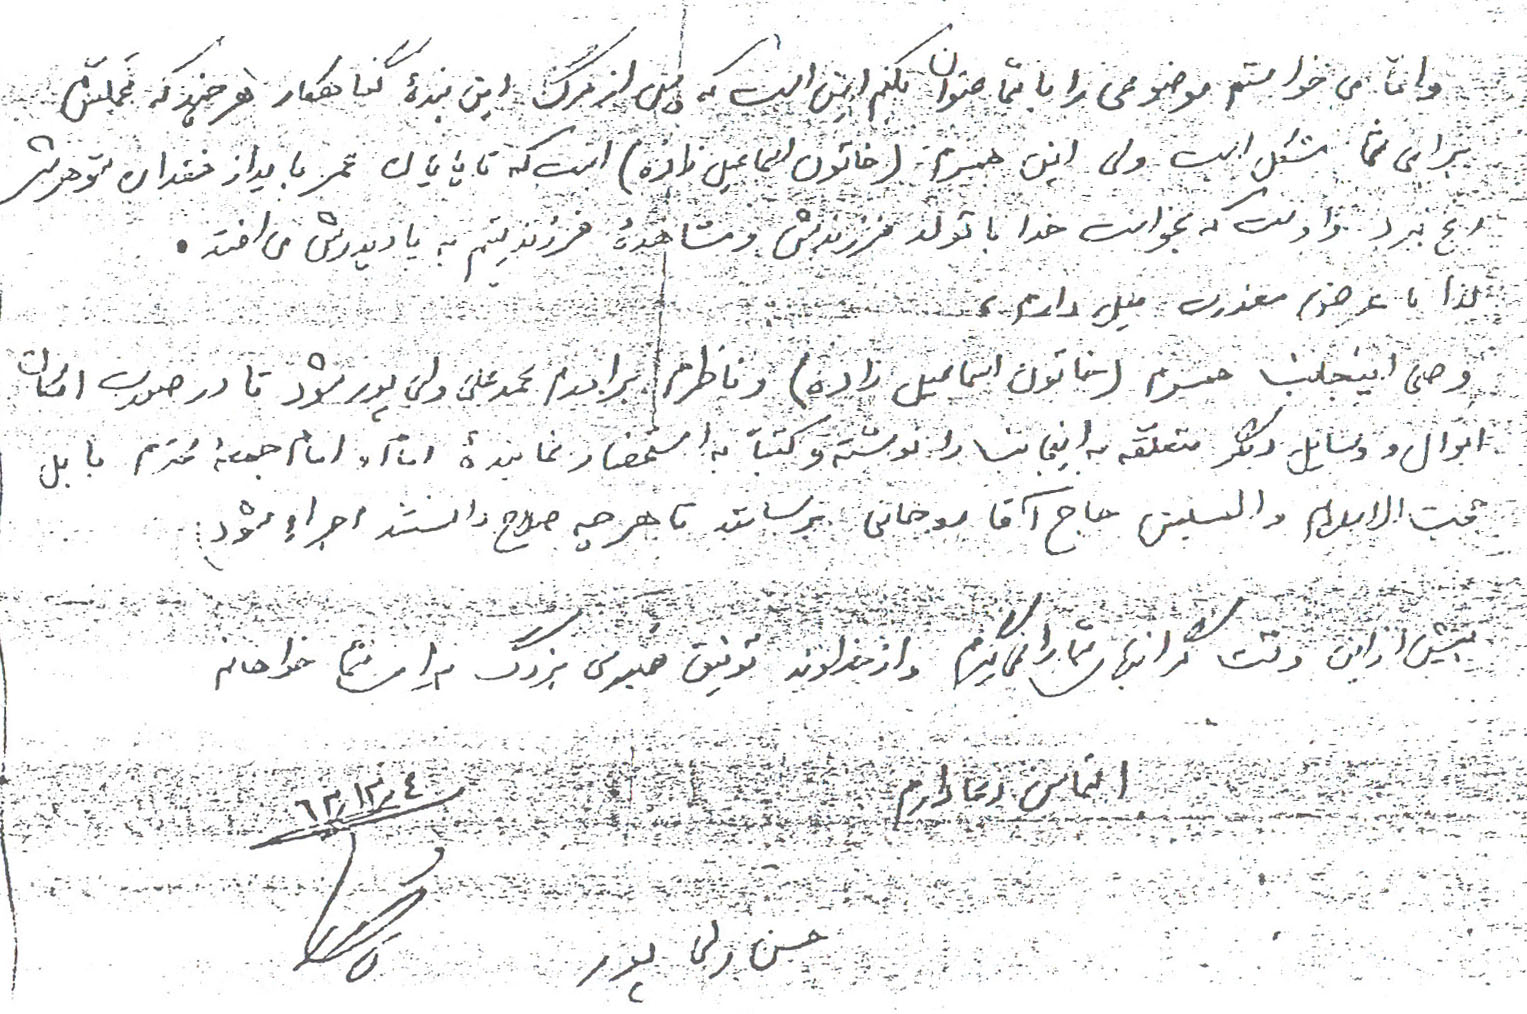 و اما می خواستم موضوعی را با شما عنوان بکنم این است که پس از مرگ این بندهٔ گناهکار هر چند که تحملش
برای شما مشکل است ولی این همسرم (خاتون اسماعیل زاده) است که تا پایان عمر باید از فقدان شوهرش
رنج ببرد و اوست که بخواست خدا با تولد فرزندش و مشاهدهٔ فرزند یتیم به یاد پدرش می افتد .
لذا با عرض معذرت میل دارم ،
وصی اینجانب همسرم (خاتون اسماعیل زاده) و ناظرم برادرم محمدعلی ولی پور شود تا در صورت امکان
اموال و وسایل دیگر متعلقه به اینجانب را نوشته و کتباً به استحضار نمایندهٔ امام و امام جمعه محترم بابل
حجت الاسلام و المسلمین حاج آقا روحانی برسانند تا هر چه صلاح دانستند اجراء شود
بیش از این وقت گرانبهای شما را نمی گیرم و از خداوند توفیق صبری بزرگ برای شما خواهانم
التماس دعا دارم
٦٣/١٢/٤
حسن ولی پور